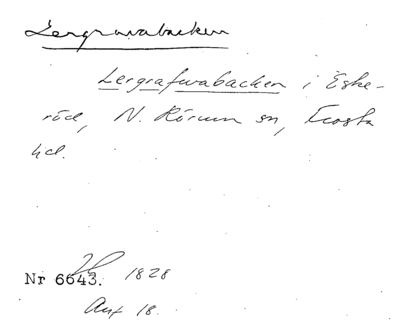 Lergravabacken
Lergrafwabacken i Eske-
röd, N. Rörum sn, Frosta
hd.
Nr 6643. 1828
18.